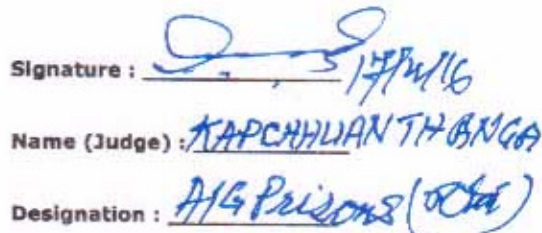 Signature : 17/11/16
Name (Judge) : KAPCHHUANTHANGA
Designation : AIG Prisons